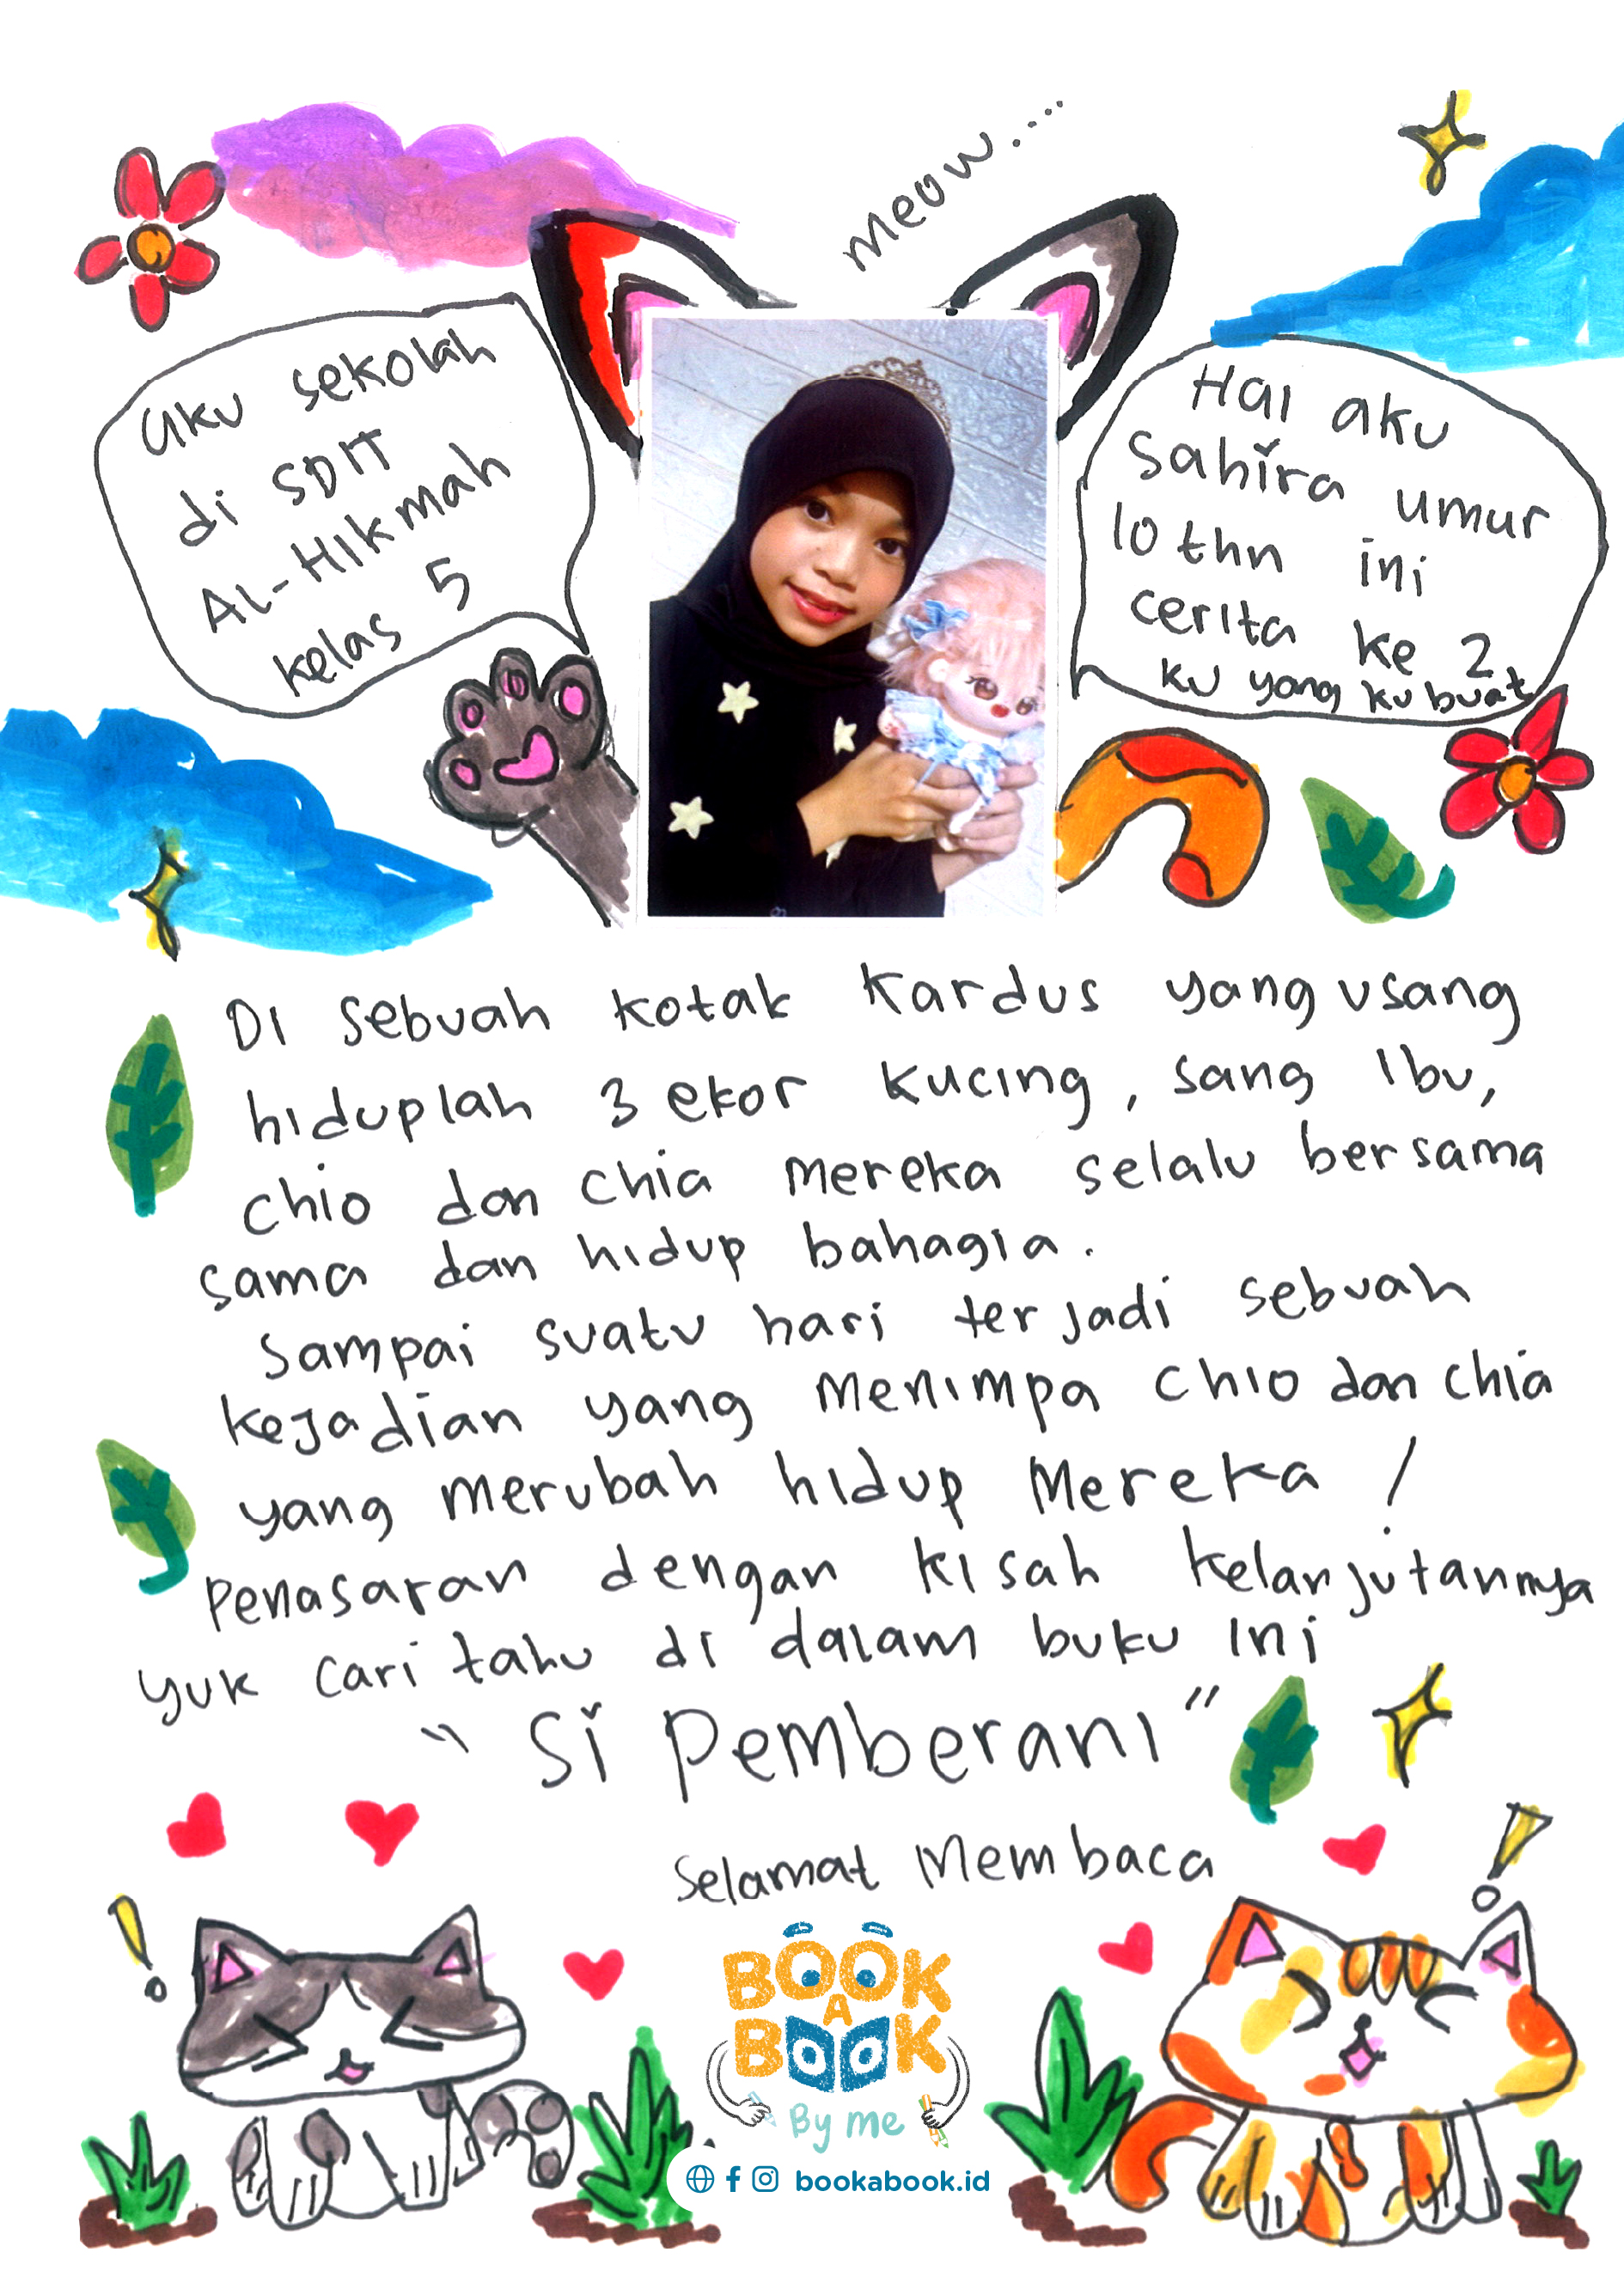 meow....
Aku sekolah
di SDIT
AL-HIKmah
kelas 5
Hai aku
Sahira umur
10 thn ini
cerita ke 2
ku yang ku buat
Di sebuah kotak kardus yang usang
hiduplah 3 ekor kucing, sang Ibu,
chio dan chia mereka selalu bersama
sama dan hidup bahagia.
Sampai suatu hari terjadi sebuah
kejadian yang menimpa chio dan chia
yang merubah hidup mereka /
Penasaran dengan kisah kelanjutannya
yuk cari tahu di dalam buku ini
"Si Pemberani"
Selamat Membaca
BOOK
A
BOOK
By me
bookabook.id